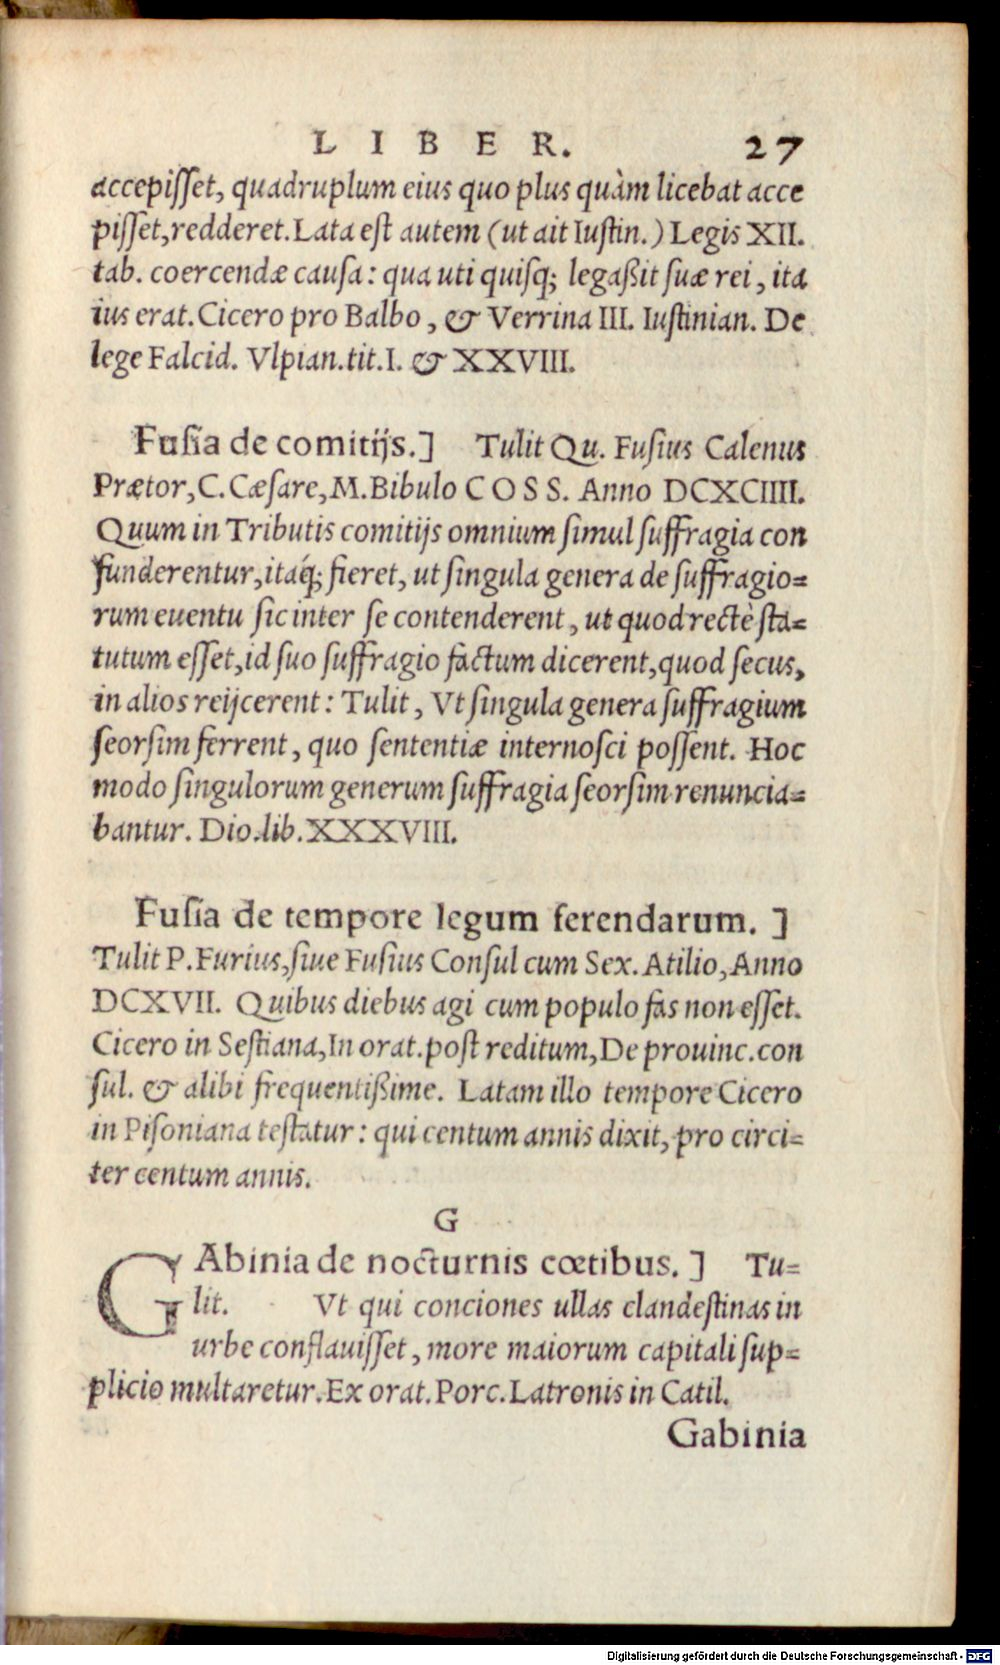 LIBER. 27
accepisset, quadruplum eius quo plus quàm licebat acce
pisset, redderet. Lata est autem (ut ait Iustin.) Legis XII.
tab. coercendæ causa: qua uti quisq; legaßit suæ rei, ita
ius erat. Cicero pro Balbo, & Verrina III. Iustinian. De
lege Falcid. Vlpian. tit. I. & XXVIII.
Fusia de comitijs.] Tulit Qu. Fusius Calenus
Prætor, C. Cæsare, M. Bibulo COSS. Anno DCXCIIII.
Quum in Tributis comitijs omnium simul suffragia con
funderentur, itaq́; fieret, ut singula genera de suffragio=
rum euentu sic inter se contenderent, ut quod rectè sta=
tutum esset, id suo suffragio factum dicerent, quod secus,
in alios reijcerent: Tulit, Vt singula genera suffragium
seorsim ferrent, quo sententiæ internosci possent. Hoc
modo singulorum generum suffragia seorsim renuncia=
bantur. Dio. lib. XXXVIII.
Fusia de tempore legum ferendarum. ]
Tulit P. Furius, siue Fusius Consul cum Sex. Atilio, Anno
DCXVII. Quibus diebus agi cum populo fas non esset.
Cicero in Sestiana, In orat. post reditum, De prouinc. con
sul. & alibi frequentißime. Latam illo tempore Cicero
in Pisoniana testatur: qui centum annis dixit, pro circi=
ter centum annis.
G
GAbinia de nocturnis cœtibus. ] Tu=
lit. Vt qui conciones ullas clandestinas in
urbe conflauisset, more maiorum capitali sup=
plicio multaretur. Ex orat. Porc. Latronis in Catil.
Gabinia
Digitalisierung gefördert durch die Deutsche Forschungsgemeinschaft - DFG